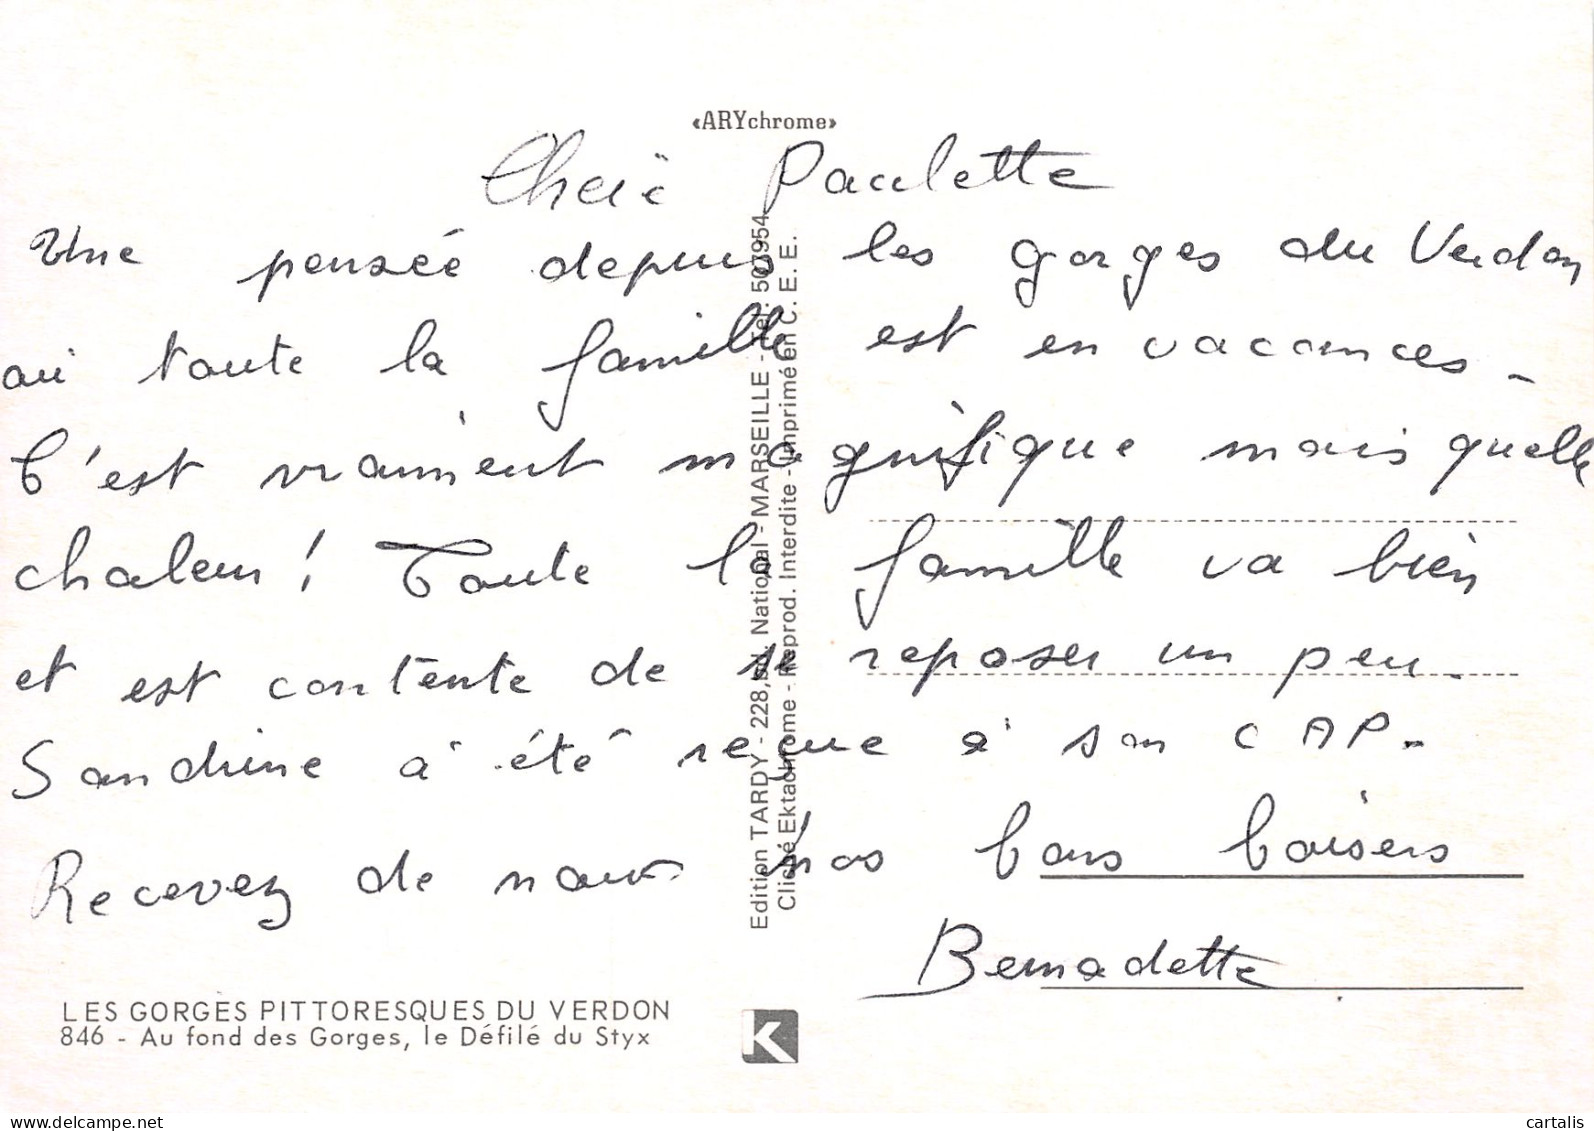 «ARYchrome»
Cheïe Paulette
Une pensée depuis les gorges du Verdon
où toute la famille est en vacances -
C'est vraiment magnifique mais quelle
chaleur ! Toute la famille va bien
et est contente de se reposer un peu.
Sandrine à été reçue à son CAP.
Recevez de nous nos bons baisers
Bernadette
Edition TARDY - 228, National - MARSEILLE - Tél: 501954
Cliché Ektachrome - Reprod. Interdite - Imprimé en C. E. E.
LES GORGES PITTORESQUES DU VERDON
846 - Au fond des Gorges, le Défilé du Styx
K
www.delcampe.net
cartalis